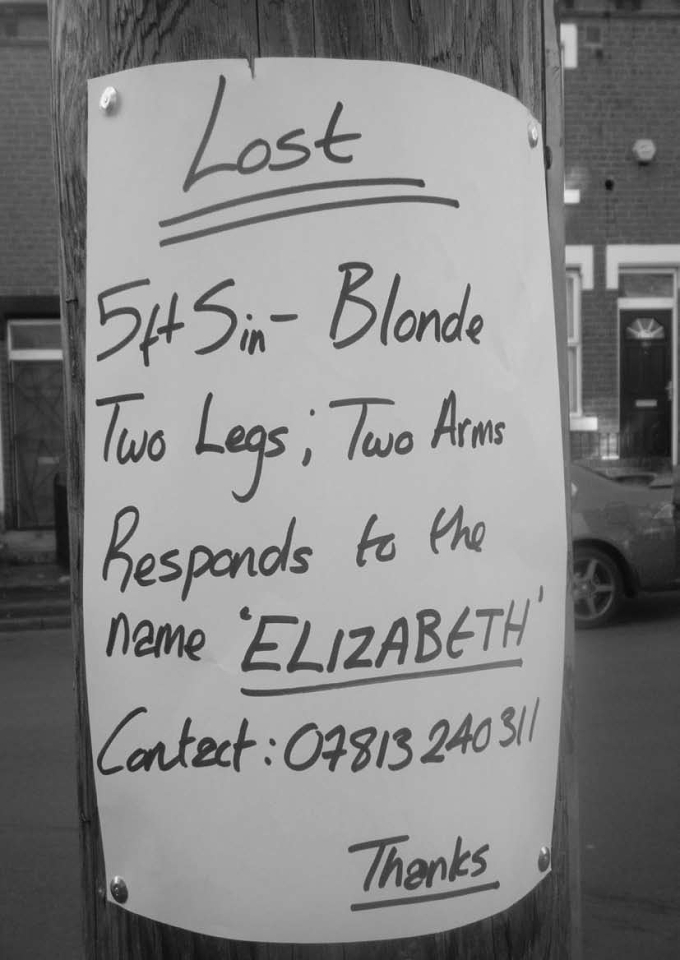 Lost
5ft 5in - Blonde
Two Legs; Two Arms
Responds to the
name 'ELIZABETH'
Contact: 07813 240311
Thanks